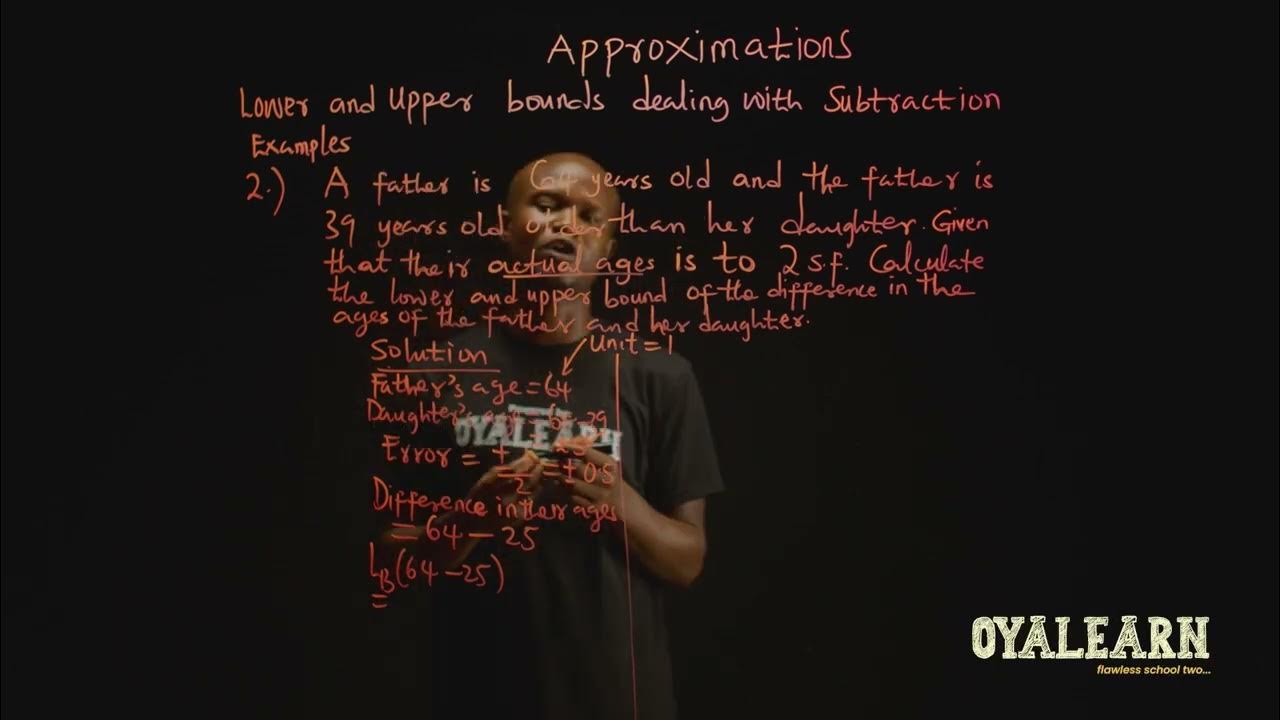 Approximations
Lower and Upper bounds dealing with Subtraction
Examples
2.) A father is 64 years old and the father is
39 years old older than her daughter. Given
that their actual ages is to 2 s.f. Calculate
the lower and upper bound of the difference in the
ages of the father and her daughter.
Solution
Unit = 1
Father's age = 64
Daughter's age = 64 - 39
= 25
OYALEARN
Error = ± 1/2 = ± 0.5
Difference in their ages
= 64 - 25
LB (64 - 25)
=
OYALEARN
flawless school two...